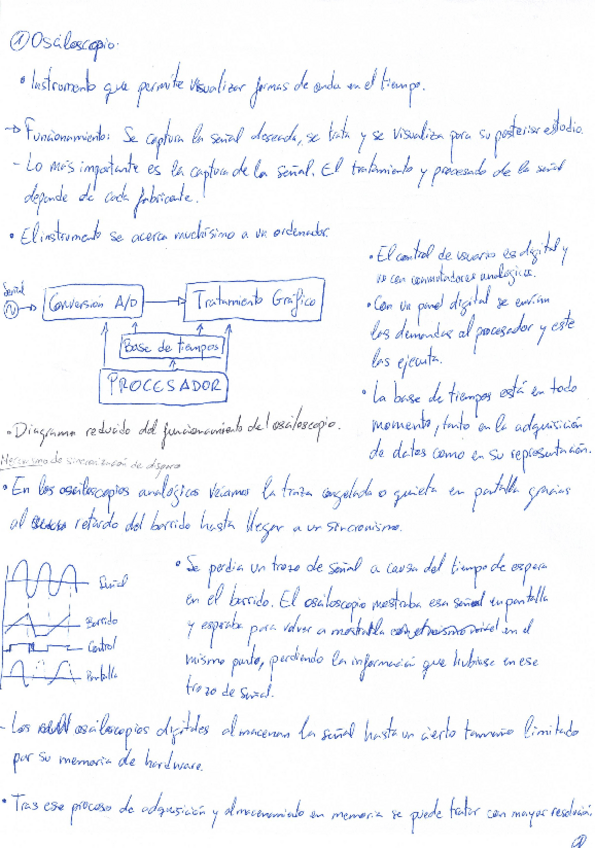 ① Osciloscopio.
• Instrumento que permite visualizar formas de onda en el tiempo.
→ Funcionamiento: Se captura la señal deseada, se trata y se visualiza para su posterior estudio.
- Lo más importante es la captura de la señal. El tratamiento y procesado de la señal
depende de cada fabricante.
• El instrumento se acerca muchísimo a un ordenador.
Señal
Conversión A/D
Tratamiento Gráfico
Base de tiempos
PROCESADOR
• Diagrama reducido del funcionamiento del osciloscopio.
• El control de usuario es digital y
no con conmutadores analógicos.
• Con un panel digital se envían
las demandas al procesador y este
las ejecuta.
• La base de tiempos está en todo
momento, tanto en la adquisición
de datos como en su representación.
Mecanismo de sincronización de disparo
• En los osciloscopios analógicos veíamos la traza congelada o quieta en pantalla gracias
al retardo del barrido hasta llegar a un sincronismo.
Señal
Barrido
Control
Pantalla
• Se perdía un trozo de señal a causa del tiempo de espera
en el barrido. El osciloscopio mostraba esa señal en pantalla
y esperaba para volver a mostrarla en el
mismo punto, perdiendo la información que hubiese en ese
trozo de señal.
- Los osciloscopios digitales almacenan la señal hasta un cierto tamaño limitado
por su memoria de hardware.
• Tras ese proceso de adquisición y almacenamiento en memoria se puede tratar con mayor resolución.